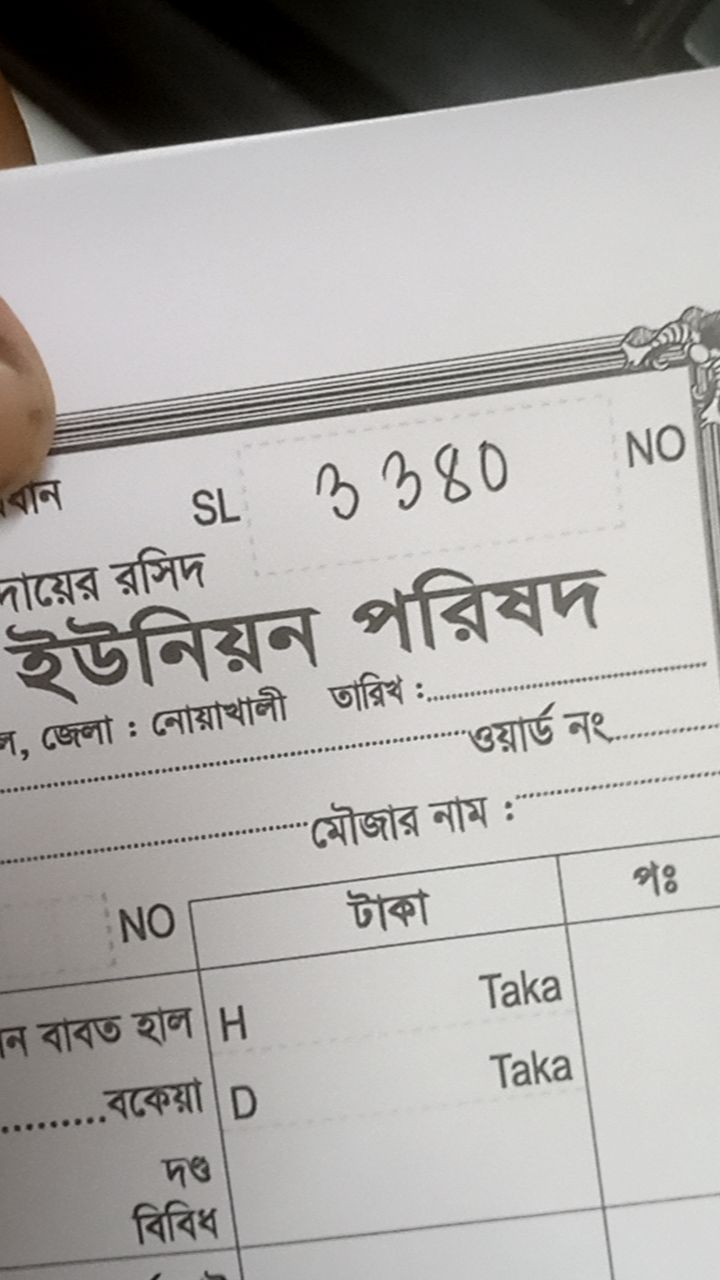 SL 3380 NO
রসিদ
ইউনিয়ন পরিষদ
জেলা : নোয়াখালী তারিখ :
ওয়ার্ড নং
মৌজার নাম :
NO টাকা পঃ
বাবত হাল H Taka
বকেয়া D Taka
দণ্ড
বিবিধ